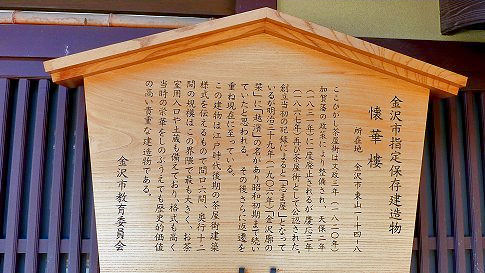 金沢市指定保存建造物
懐華樓
所在地 金沢市東山一ー十四ー八
ひがし茶屋街は文政三年(一八二〇年)
加賀藩の政策により整備され、天保二年
(一八三一年)に一度廃止されるが慶応三年
(一八六七年)再び茶屋街として公認された。
創立当初の記録によると「志ま屋」となって
いるが明治三十九年(一九〇六年)「金沢廓の
栞」に「越濱」の名があり昭和初期まで続い
ていたと思われる。その後さらに変遷を
重ね現在に至っている。
この建物は江戸時代後期の茶屋街建築
様式を伝えるもので間口六間、奥行十二
間の規模はこの界隈で最も大きく、お茶
室用入口や土蔵も備えており、格式も高く
当時の栄華をしのぶうえでも歴史的価値
の高い貴重な建造物である。
金沢市教育委員会